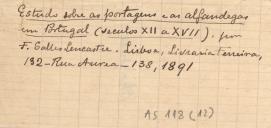 Estudo sobre as portagens e as alfandegas
em Portugal (seculos XII a XVII), por
F. Salles Lencastre. Lisboa, Livraria Ferreira,
132-Rua Aurea-138, 1891
AS 118 (12)